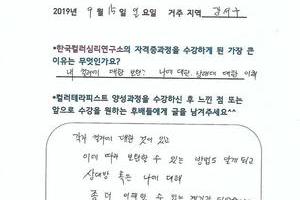 2019년 9월 15일 일요일 거주 지역 강서구
•한국컬러심리연구소의 자격증과정을 수강하게 된 가장 큰
이유는 무엇인가요?
내 컬러에 대한 보완? 나에 대한, 상대에 대한 이해
•컬러테라피스트 양성과정을 수강하신 후 느낀 점 또는
앞으로 수강을 원하는 후배들에게 글을 남겨주세요^^
각자 컬러에 대한 것이 있고
이에 따라 보완할 수 있는 방법도 알게 되고
상대방 혹은 나에 대해
좀 더 이해할 수 있는